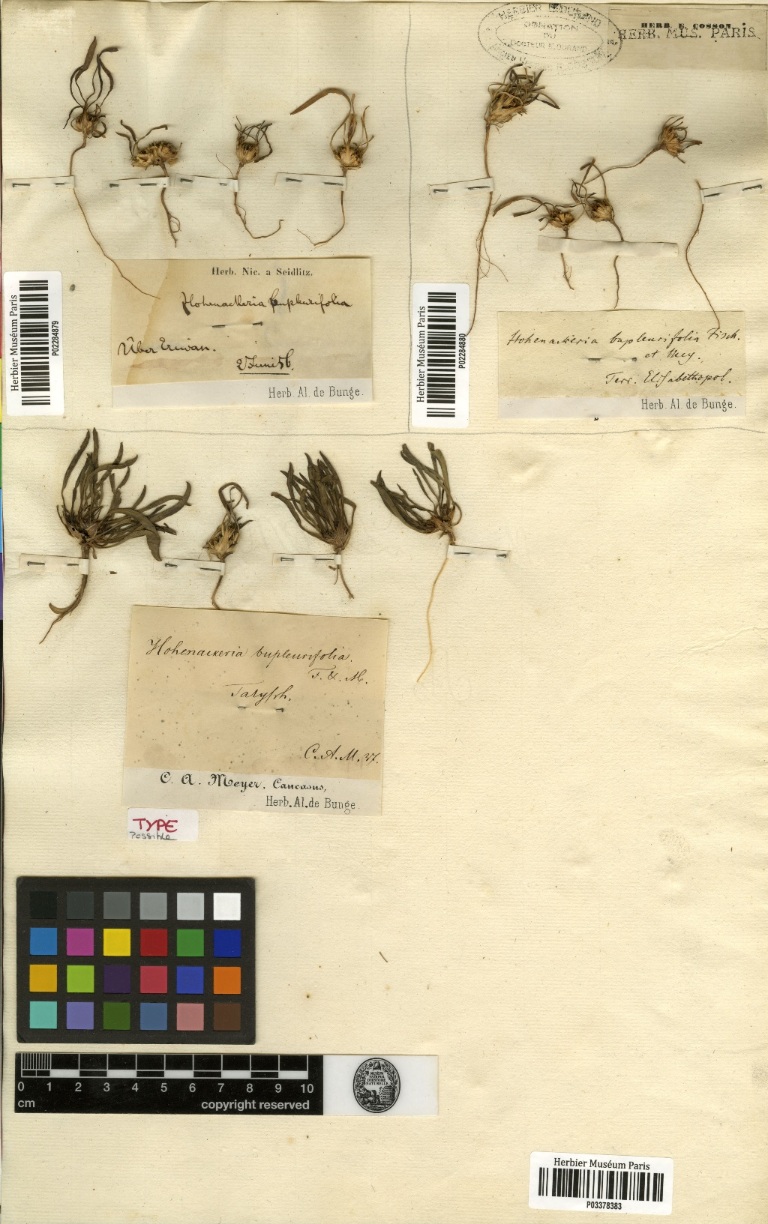 DONATION
DU
HERB. E. COSSON
HERB. MUS. PARIS.
Herbier Muséum Paris
P02284879
Herb. Nic. a Seidlitz.
Hohenackeria bupleurifolia
Über Eriwan.
2 Juni 56.
Herb. Al. de Bunge.
Herbier Muséum Paris
P02284880
Hohenackeria bupleurifolia Fisch.
et Mey.
Terr. Elisabethopol.
Herb. Al. de Bunge.
Hohenackeria bupleurifolia.
F. & M.
Talysch.
C. A. M.
C. A. Meyer. Caucasus,
Herb. Al. de Bunge.
TYPE
Possible
0 1 2 3 4 5 6 7 8 9 10
cm
copyright reserved
Herbier Muséum Paris
P03378383